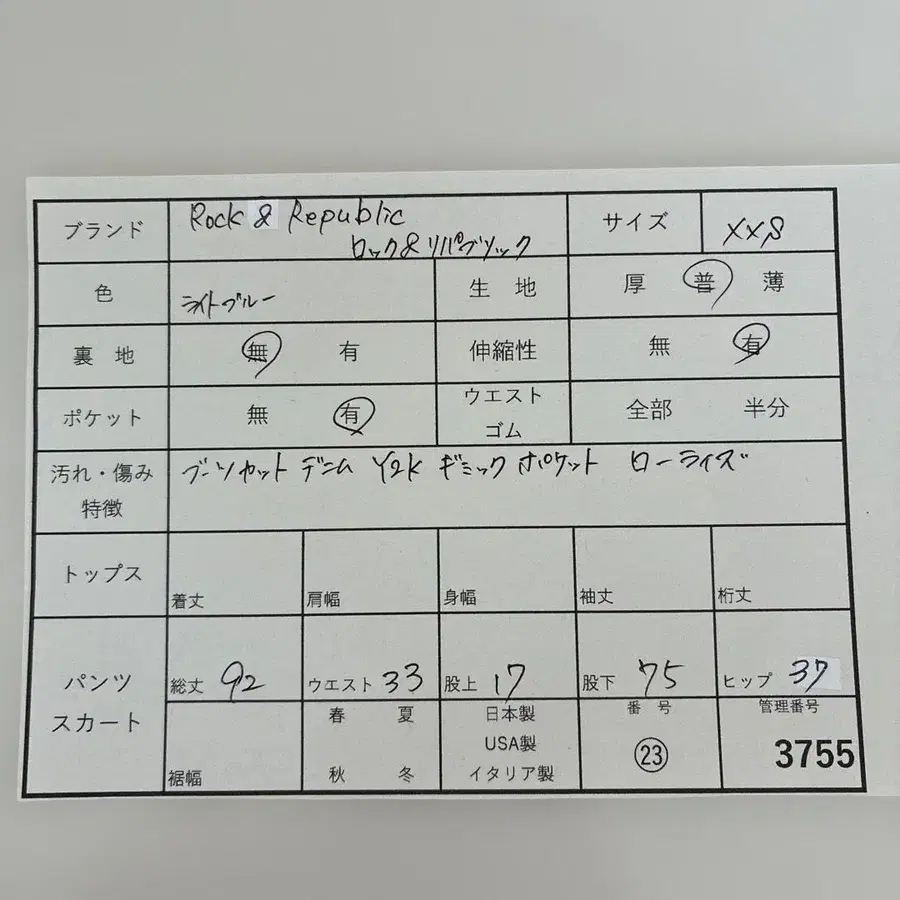 ブランド Rock & Republic サイズ XXS
ロック&リパブリック
色 ライトブルー 生地 厚 普 薄
裏地 無 有 伸縮性 無 有
ポケット 無 有 ウエスト 全部 半分
ゴム
汚れ・傷み ブーツカット デニム Y2K ギミックポケット ローライズ
特徴
トップス 着丈 肩幅 身幅 袖丈 裄丈
パンツ 総丈 92 ウエスト 33 股上 17 股下 75 ヒップ 37
スカート 春 夏 日本製 番号 管理番号
USA製 ㉓ 3755
裾幅 秋 冬 イタリア製